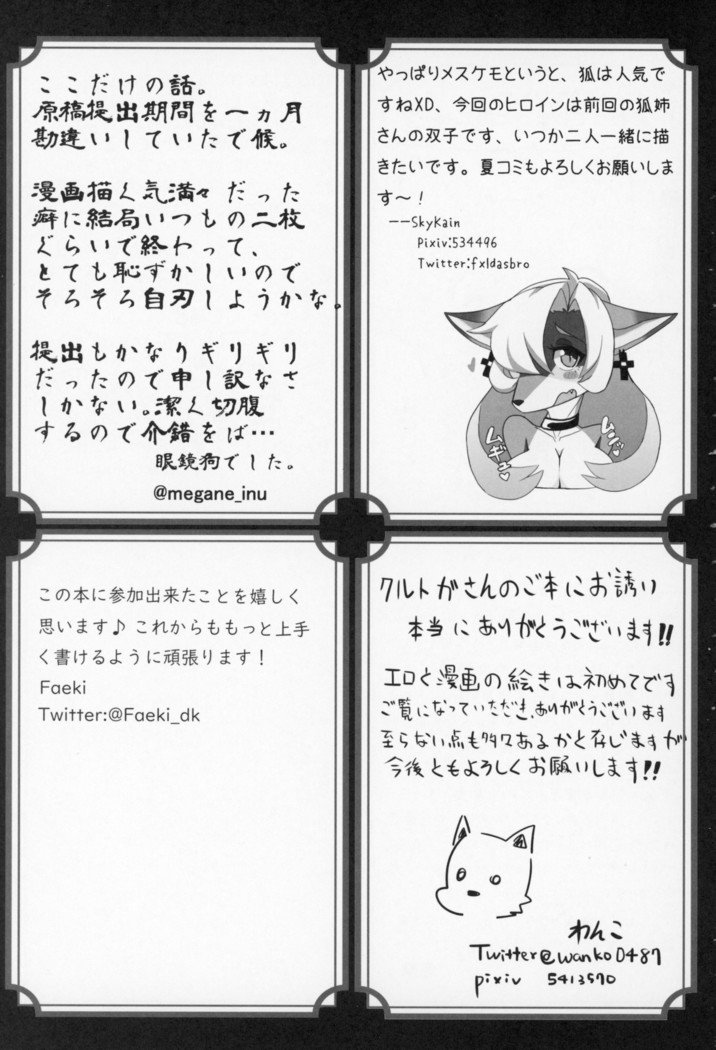 ここだけの話。
原稿提出期間を一ヵ月
勘違いしていたで候。
漫画描く気満々だった
癖に結局いつもの二枚
ぐらいで終わって、
とても恥ずかしいので
そろそろ自刃しようかな。
提出もかなりギリギリ
だったので申し訳なさ
しかない。潔く切腹
するので介錯をば…
眼鏡狗でした。
@megane_inu
やっぱりメスケモというと、狐は人気で
すねXD、今回のヒロインは前回の狐姉
さんの双子です、いつか二人一緒に描
きたいです。夏コミもよろしくお願いしま
す～！
——SkyKain
Pixiv:534496
Twitter:fxldasbro
ムギュ
ムギュ
この本に参加出来たことを嬉しく
思います♪ これからももっと上手
く書けるように頑張ります！
Faeki
Twitter:@Faeki_dk
クルトガさんのご本にお誘い
本当にありがとうございます!!
エロと漫画の絵きは初めてです
ご覧になっていただき、ありがとうございます
至らない点も多々あるかと存じますが
今後ともよろしくお願いします!!
わんこ
Twitter@wanko0487
pixiv 5413570